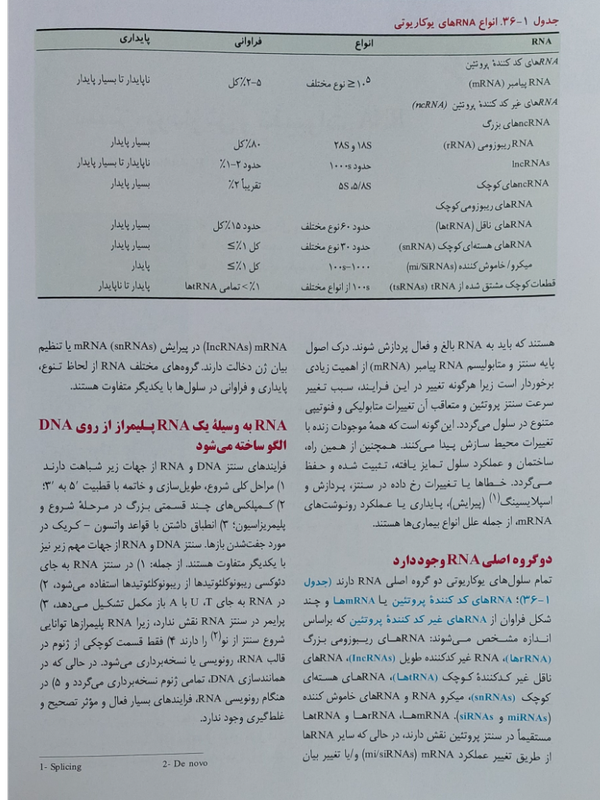 جدول ۱-۳۶. انواع RNAهای یوکاریوتی
RNA انواع فراوانی پایداری
RNAهای کد کنندهٔ پروتئین
RNA پیامبر (mRNA) ۱۰⁵≤ نوع مختلف ۲-۵٪کل ناپایدار تا بسیار پایدار
RNAهای غیر کد کنندهٔ پروتئین (ncRNA)
ncRNAهای بزرگ
RNA ریبوزومی (rRNA) ۱۸S و ۲۸S ۸۰٪کل بسیار پایدار
lncRNAs حدود ۱۰۰۰s حدود ۲-۱٪ ناپایدار تا بسیار پایدار
ncRNAهای کوچک ۵S ،۵/۸S تقریباً ۲٪ بسیار پایدار
RNAهای ریبوزومی کوچک
RNAهای ناقل (tRNAها) حدود ۶۰ نوع مختلف حدود ۱۵٪کل بسیار پایدار
RNAهای هسته‌ای کوچک (snRNA) حدود ۳۰ نوع مختلف کل ۱٪≥ بسیار پایدار
میکرو/خاموش کننده (mi/SiRNAs) ۱۰۰s-۱۰۰۰ کل ۱٪≥ پایدار
قطعات کوچک مشتق شده از tRNA (tsRNAs) ۱۰۰s از انواع مختلف ۱٪> تمامی tRNAها پایدار تا ناپایدار
هستند که باید به RNA بالغ و فعال پردازش شوند. درک اصول
پایه سنتز و متابولیسم RNA پیامبر (mRNA) از اهمیت زیادی
برخوردار است زیرا هرگونه تغییر در این فرایند، سبب تغییر
سرعت سنتز پروتئین و متعاقب آن تغییرات متابولیکی و فنوتیپی
متنوع در سلول می‌گردد. این گونه است که همهٔ موجودات زنده با
تغییرات محیط سازش پیدا می‌کنند. همچنین از همین راه،
ساختمان و عملکرد سلول تمایز یافته، تثبیت شده و حفظ
می‌گردد. خطاها یا تغییرات رخ داده در سنتز، پردازش و
اسپلایسینگ(۱) (پیرایش)، پایداری یا عملکرد رونوشت‌های
mRNA، از جمله علل انواع بیماری‌ها هستند.
دو گروه اصلی RNA وجود دارد
تمام سلول‌های یوکاریوتی دو گروه اصلی RNA دارند (جدول
۱-۳۶)؛ RNAهای کد کنندهٔ پروتئین یا mRNAها و چند
شکل فراوان از RNAهای غیر کد کنندهٔ پروتئین که براساس
اندازه مشخص می‌شوند: RNAهای ریبوزومی بزرگ
(rRNAها)، RNA غیر کدکننده طویل (lncRNAs)، RNAهای
ناقل غیر کدکنندهٔ کوچک (tRNAها)، RNAهای هسته‌ای
کوچک (snRNAs)، میکرو RNA و RNAهای خاموش کننده
(miRNAs و siRNAs). mRNAها، rRNAها و tRNAها
مستقیماً در سنتز پروتئین نقش دارند، در حالی که سایر RNAها
از طریق تغییر عملکرد mRNA (mi/siRNAs) و/یا تغییر بیان
mRNA (lncRNAs) در پیرایش mRNA (snRNAs) یا تنظیم
بیان ژن دخالت دارند. گروه‌های مختلف RNA از لحاظ تنوع،
پایداری و فراوانی در سلول‌ها با یکدیگر متفاوت هستند.
RNA به وسیلهٔ یک RNA پلیمراز از روی DNA
الگو ساخته می‌شود
فرایندهای سنتز DNA و RNA از جهات زیر شباهت دارند
۱) مراحل کلی شروع، طویل‌سازی و خاتمه با قطبیت ′۵ به ′۳؛
۲) کمپلکس‌های چند قسمتی بزرگ در مرحلهٔ شروع و
پلیمریزاسیون؛ ۳) انطباق داشتن با قواعد واتسون - کریک در
مورد جفت‌شدن بازها. سنتز DNA و RNA از جهات مهم زیر نیز
با یکدیگر متفاوت هستند. از جمله: ۱) در سنتز RNA به جای
دئوکسی ریبونوکلئوتیدها از ریبونوکلئوتیدها استفاده می‌شود، ۲)
در RNA به جای T، U با A باز مکمل تشکیل می‌دهد، ۳)
پرایمر در سنتز RNA نقش ندارد، زیرا RNA پلیمرازها توانایی
شروع سنتز از نو(۲) را دارند ۴) فقط قسمت کوچکی از ژنوم در
قالب RNA، رونویسی یا نسخه‌برداری می‌شود. در حالی که در
همانندسازی DNA، تمامی ژنوم نسخه‌برداری می‌گردد و ۵) در
هنگام رونویسی RNA، فرایندهای بسیار فعال و مؤثر تصحیح و
غلط‌گیری وجود ندارد.
1- Splicing 2- De novo